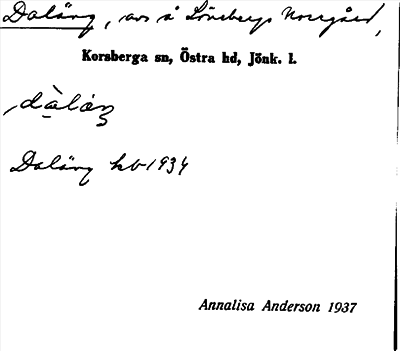 Daläng, avs å Lövebergs Norrgård,
Korsberga sn, Östra hd, Jönk. l.
dàláŋ
Daläng hb 1934
Annalisa Anderson 1937